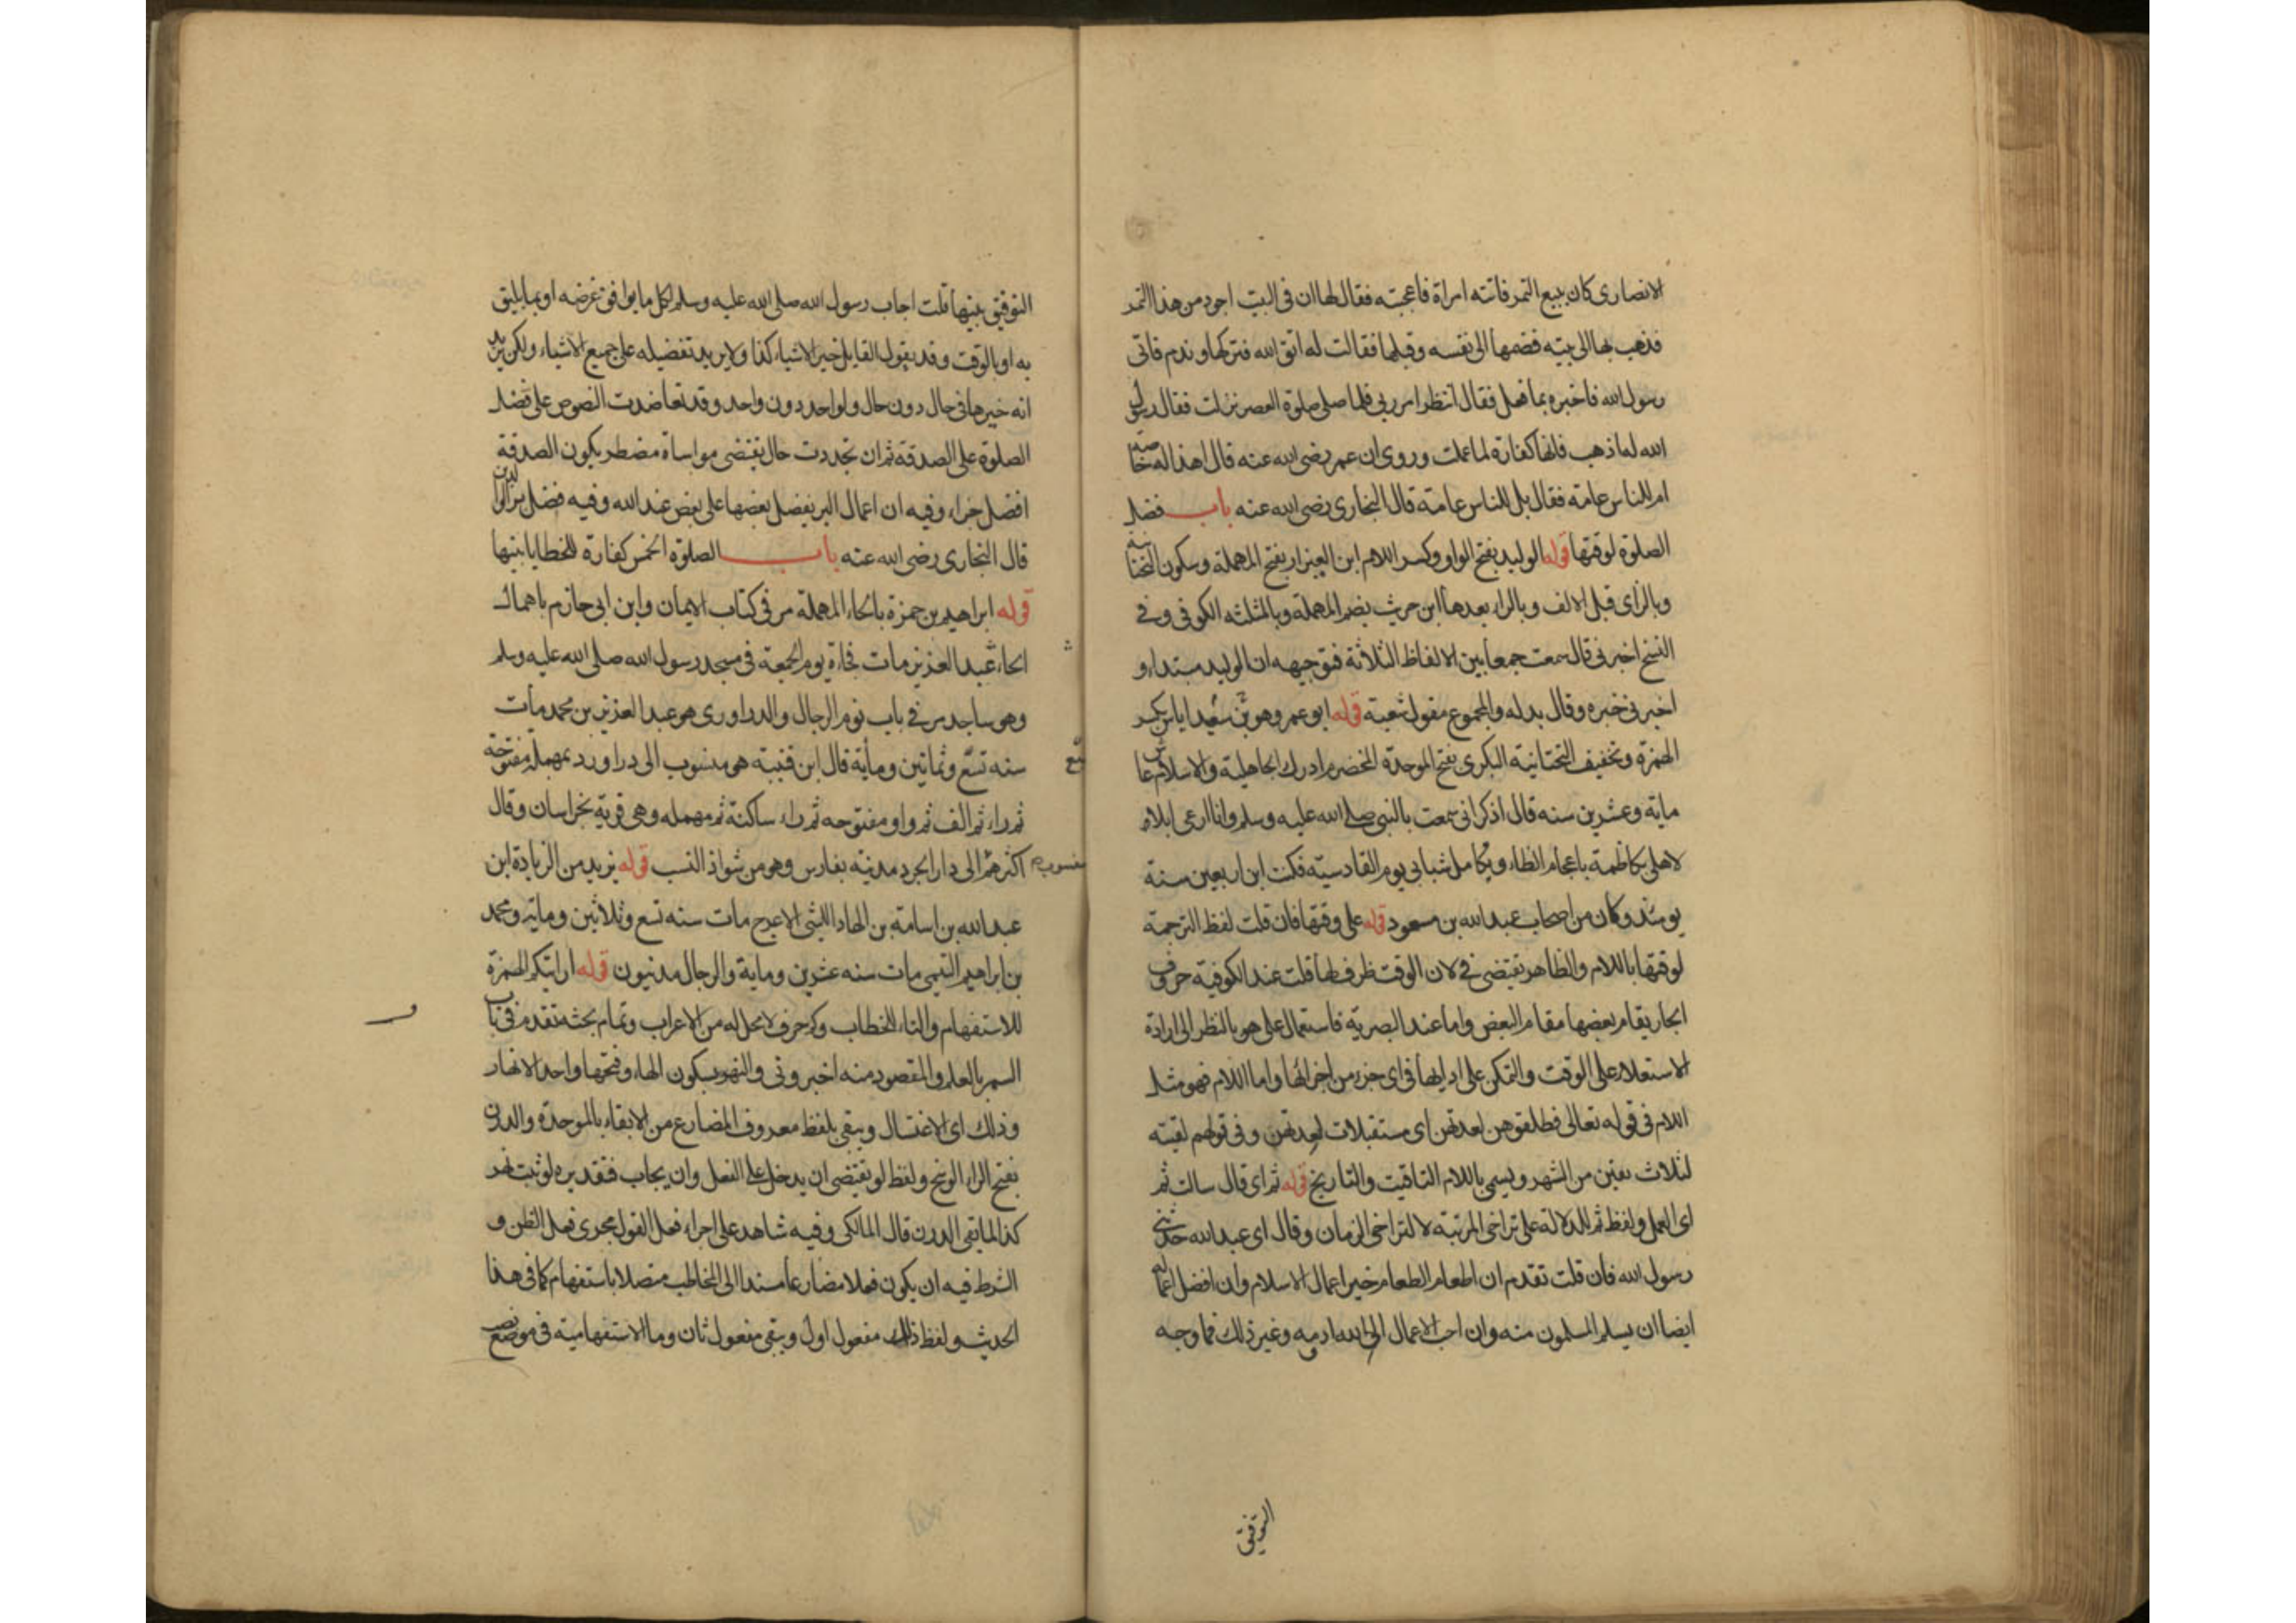 الانصاری كان يبيع التمر فاتته امراة فاعجبته فقال لها ان فى البيت اجود من هذا التمر
فذهب بها الى بيته فضمها الى نفسه وقبلها فقالت له اتق الله فتركها وندم فاتى
رسول الله فاخبره بما فعل فقال انتظر امر ربى فلما صلى صلوة العصر نزلت فقال رسول
الله له اذهب فانها كفارة لما عملت وروى ان عمر رضى الله عنه قال اهذا له خاصة
ام للناس عامة فقال بل للناس عامة قال البخارى رضى الله عنه باب فضل
الصلوة لوقتها قوله الوليد بفتح الواو وكسر اللام ابن العيزار بفتح المهملة وسكون التحتانية
وبالزاى قبل الالف وبالراء بعدها ابن حريث بضم المهملة وبالمثلثه الكوفى وفى
النسخ اخبرنى قال سمعت جمعا بين الالفاظ الثلاثة فتوجيهه ان الوليد مبتداء و
اخبرنى خبره وقال بدله والمجموع مقول شعبة قوله ابو عمرو هو سعيد اياس بكسر
الهمزة وتخفيف التحتانية البكرى بفتح الموحدة المخضرم ادرك الجاهلية والاسلام عاش
ماية وعشرين سنه قال اذكر انى سمعت بالنبى صلى الله عليه وسلم وانا ارعى ابلا
لاهلى بكاظمة باعجام الظاء وتكامل شبابى يوم القادسية فكنت ابن اربعين سنة
يومئذ وكان من اصحاب عبد الله بن مسعود قوله على وقتها فان قلت لفظ الترجمة
لوقتها باللام والظاهر تقتضى فى لان الوقت ظرف لها قلت عند الكوفية حروف
الجار يقام بعضها مقام البعض واما عند البصرية فاستعمال على هو بالنظر الى ارادة
الاستعلاء على الوقت والتمكن على ادايها فى اى جزء من اجزائها واما اللام فهو مثل
اللام فى قوله تعالى فطلقوهن لعدتهن اى مستقبلات لعدتهن وفى قولهم لقيته
لثلاث بقين من الشهر ويسمى باللام التاقيت والتاريخ قوله ثم اى قال سالت ثم
اى العمل ولفظ ثم للدلالة على تراخى المرتبة لا لتراخى الزمان وقال اى عبد الله حدثنى
رسول الله فان قلت تقدم ان اطعام الطعام خير اعمال الاسلام وان افضل اعماله
ايضا ان يسلم المسلمون منه وان احب الاعمال الى الله ادومه وغير ذلك فما وجه
التوفيق
التوفيق بينها قلت اجاب رسول الله صلى الله عليه وسلم لكل ما يوافق غرضه او بما يليق
به او بالوقت وقد يقول القايل خير الاشياء كذا ولا يريد تفضيله على جميع الاشياء ولكن يريد
انه خيرها فى حال دون حال ولواحد دون واحد وقد تعاضدت النصوص على فضل
الصلوة على الصدقة ثم ان تجددت حال يقتضى مواساة مضطر يكون الصدقة
افضل جزاء وفيه ان اعمال البر يفضل بعضها على بعض عند الله وفيه فضل بر الوالدين
قال البخارى رضى الله عنه باب الصلوة الخمس كفارة للخطايا بينها
قوله ابراهيم بن حمزة بالحاء المهملة مر فى كتاب الايمان وابن ابى حازم باهمال
الحاء عبد العزيز مات فجاءة يوم الجمعة فى مسجد رسول الله صلى الله عليه وسلم
وهو ساجد مر فى باب نوم الرجال والدراوردى هو عبد العزيز بن محمد مات
سنه تسع وثمانين وماية قال ابن قتيبة هو منسوب الى دراورد بمهملة مفتوحة
ثم راء ثم الف ثم واو مفتوحه ثم راء ساكنة ثم مهمله وهى قرية بخراسان وقال
اكثرهم منسوب الى دارابجرد مدينة بفارس وهو من شواذ النسب قوله يزيد من الزيادة ابن
عبد الله بن اسامة بن الهاد الليثى الاعرج مات سنه تسع وثلاثين وماية ومحمد
بن ابراهيم التيمى مات سنه عشرين وماية والرجال مدنيون قوله ارايتكم الهمزة
للاستفهام والتاء للخطاب وكم حرف لا محل له من الاعراب وتمام بحثه تقدم فى باب
السمر بالعلم والمقصود منه اخبرونى والنهر بسكون الهاء وفتحها واحد الانهار
وذلك اى الاغتسال ويبقى بلفظ معروف المضارع من الابقاء بالموحدة والدرن
بفتح الراء الوسخ ولفظ لو تقتضى ان يدخل على الفعل وان يجاب فتقديره لو ثبت نهر
كذا لما بقى الدرن قال المالكى وفيه شاهد على اجراء فعل القول مجرى فعل الظن و
الشرط فيه ان يكون فعلا مضارعا مسندا الى المخاطب متصلا باستفهام كما فى هذا
الحديث ولفظ ذلك مفعول اول ويبقى مفعول ثان وما الاستفهامية فى موضع نصب